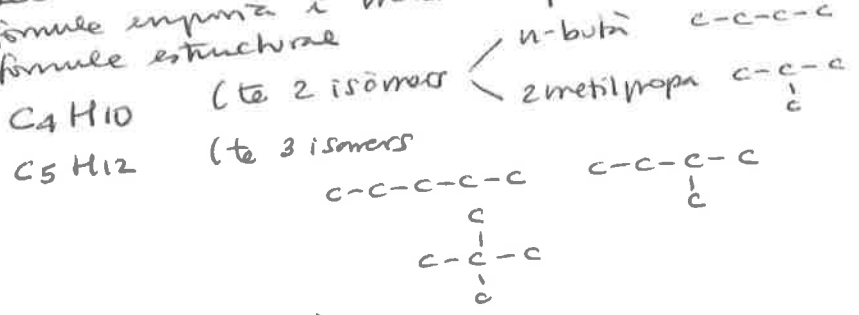 fórmule empírica i
fórmule estructural
C4 H10 (te 2 isòmers n-butà C-C-C-C
2 metilpropa C-C-C
C
C5 H12 (te 3 isomers
C-C-C-C-C C-C-C-C
C
C
C-C-C
C